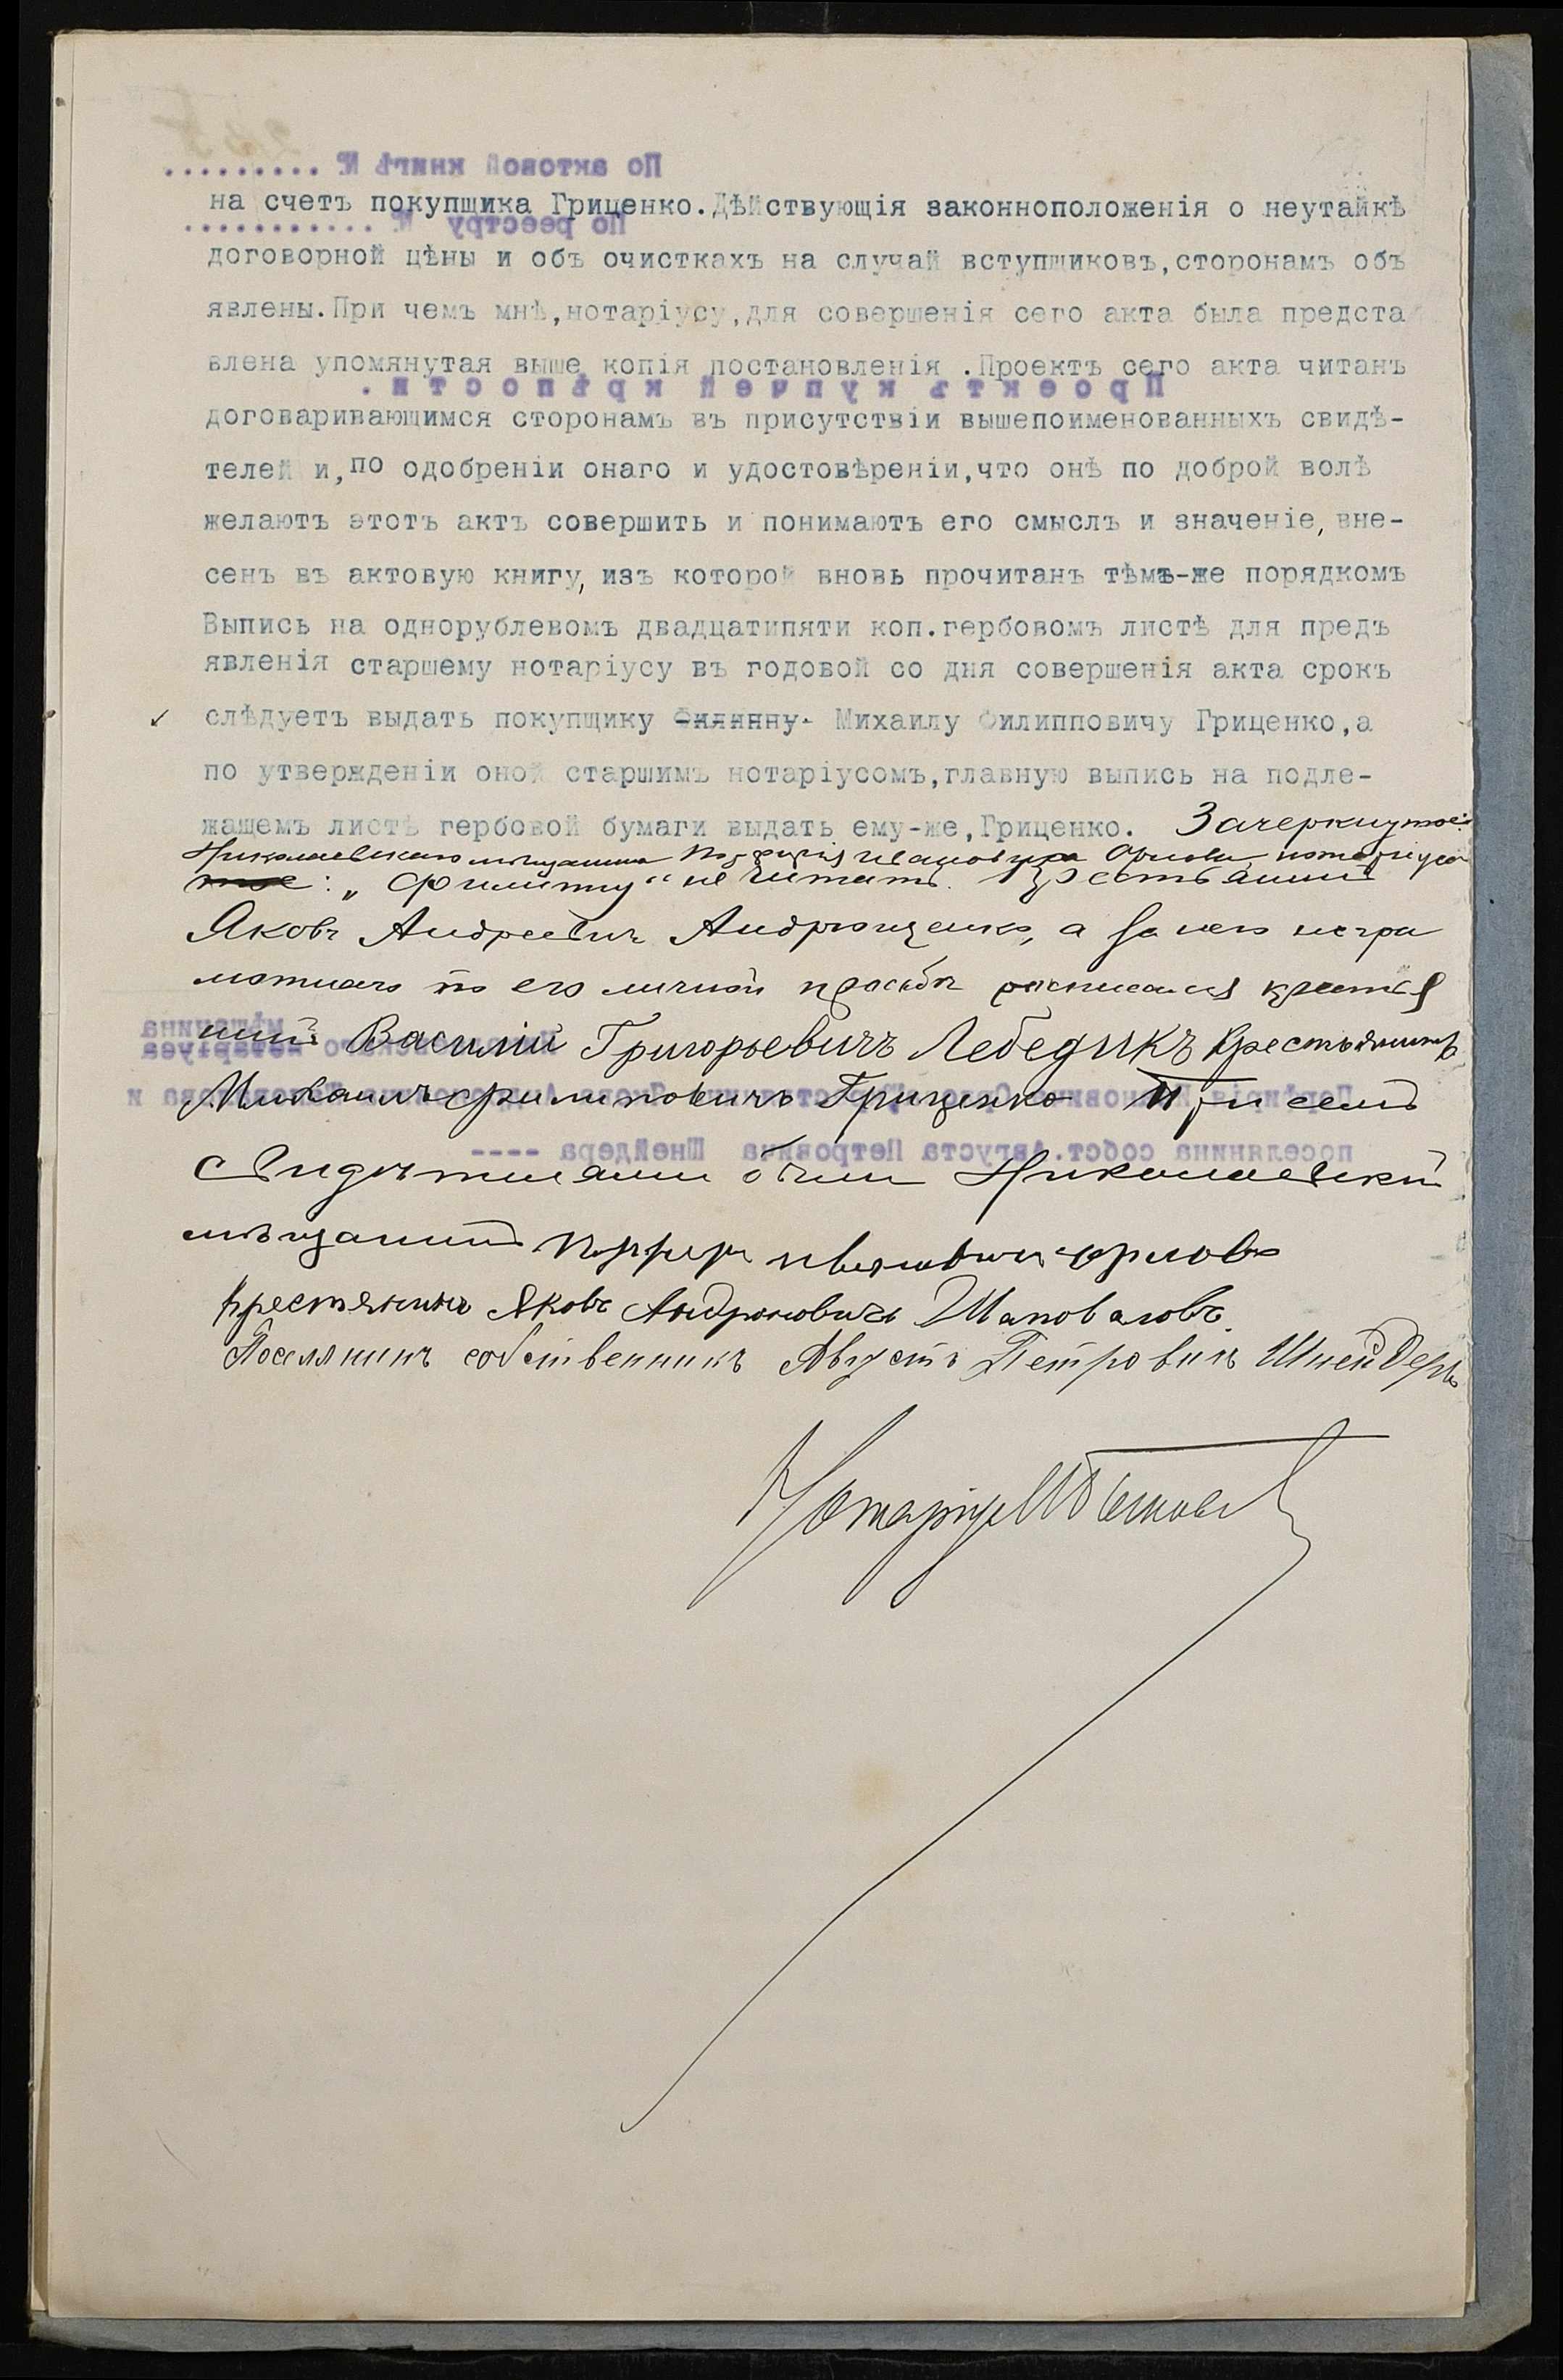 на счетъ покупщика Гриценко.Дѣйствующія законноположенія о неутайкѣ
договорной цѣны и объ очисткахъ на случай вступщиковъ,сторонамъ объ
явлены.При чемъ мнѣ,нотаріусу,для совершенія сего акта была предста
влена упомянутая выше копія постановленія .Проектъ сего акта читанъ
договаривающимся сторонамъ въ присутствіи вышепоименованныхъ свидѣ-
телей и,по одобреніи онаго и удостовѣреніи,что онѣ по доброй волѣ
желаютъ этотъ актъ совершить и понимаютъ его смыслъ и значеніе, вне-
сенъ въ актовую книгу, изъ которой вновь прочитанъ тѣмъ-же порядкомъ
Выпись на однорублевомъ двадцатипяти коп.гербовомъ листѣ для предъ
явленія старшему нотаріусу въ годовой со дня совершенія акта срокъ
слѣдуетъ выдать покупщику Филиппу Михаилу Филипповичу Гриценко,а
по утвержденіи оной старшимъ нотаріусомъ,главную выпись на подле-
жащемъ листѣ гербовой бумаги выдать ему-же,Гриценко. Зачеркнутое:
Николаевскаго мѣщанина Порфирія Ивановича Орлова, нотаріуса
тое: „Филиппу" не читать. Крестьянинъ
Яковъ Андреевичъ Андрющенко, а за него негра
мотнаго по его личной просьбѣ росписался крестья
нинъ Василій Григорьевичъ Лебедикъ Крестьянинъ
Михаилъ Филиповичъ Гриценко При семъ
свидѣтелями были Николаевскій
мѣщанинъ Порфир Ивановичъ Орловъ
крестьянинъ Яковъ Андроновичъ Шаповаловъ.
Поселянинъ собственникъ Августъ Петровичъ Шнейдеръ
Нотаріусъ